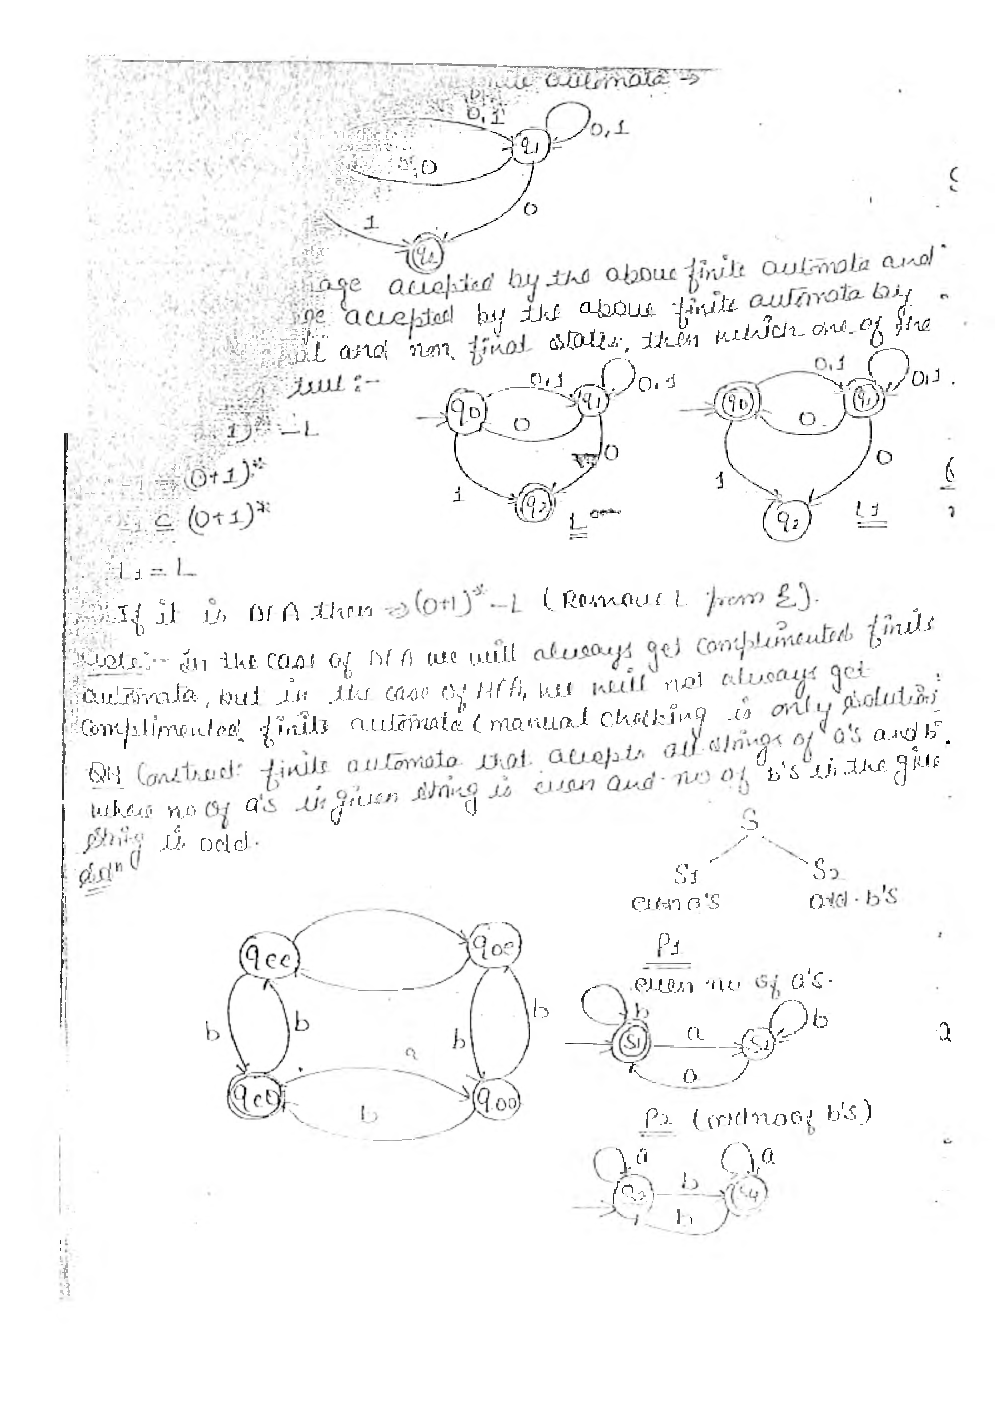 automata →
0,1
q1
0,1
0
0
1
q2
age accepted by the above finite automata and
ge accepted by the above finite automata by
and non final states, then which one of the
true :-
0,1
0,1
q0
q1
0
1
0
q2
L
0,1
0,1
q0
q1
0
1
0
q2
L1
1)* - L
(0+1)*
⊆ (0+1)*
L1 = L
If it is DFA then ⇒ (0+1)* - L (Remove L from Σ).
Note:- In the case of DFA we will always get complimented finite
automata, but in the case of NFA, we will not always get
complimented finite automata (manual checking is only solution)
Construct finite automata that accepts all strings of a's and b's
where no of a's in given string is even and no of b's in the give
string is odd.
Soln
S
S1
S2
even a's
odd b's
qee
qoe
b
b
b
b
a
qeo
qoo
b
P1
even no of a's.
b
b
S1
a
S2
P2 (odd no of b's)
a
a
b
S4
b